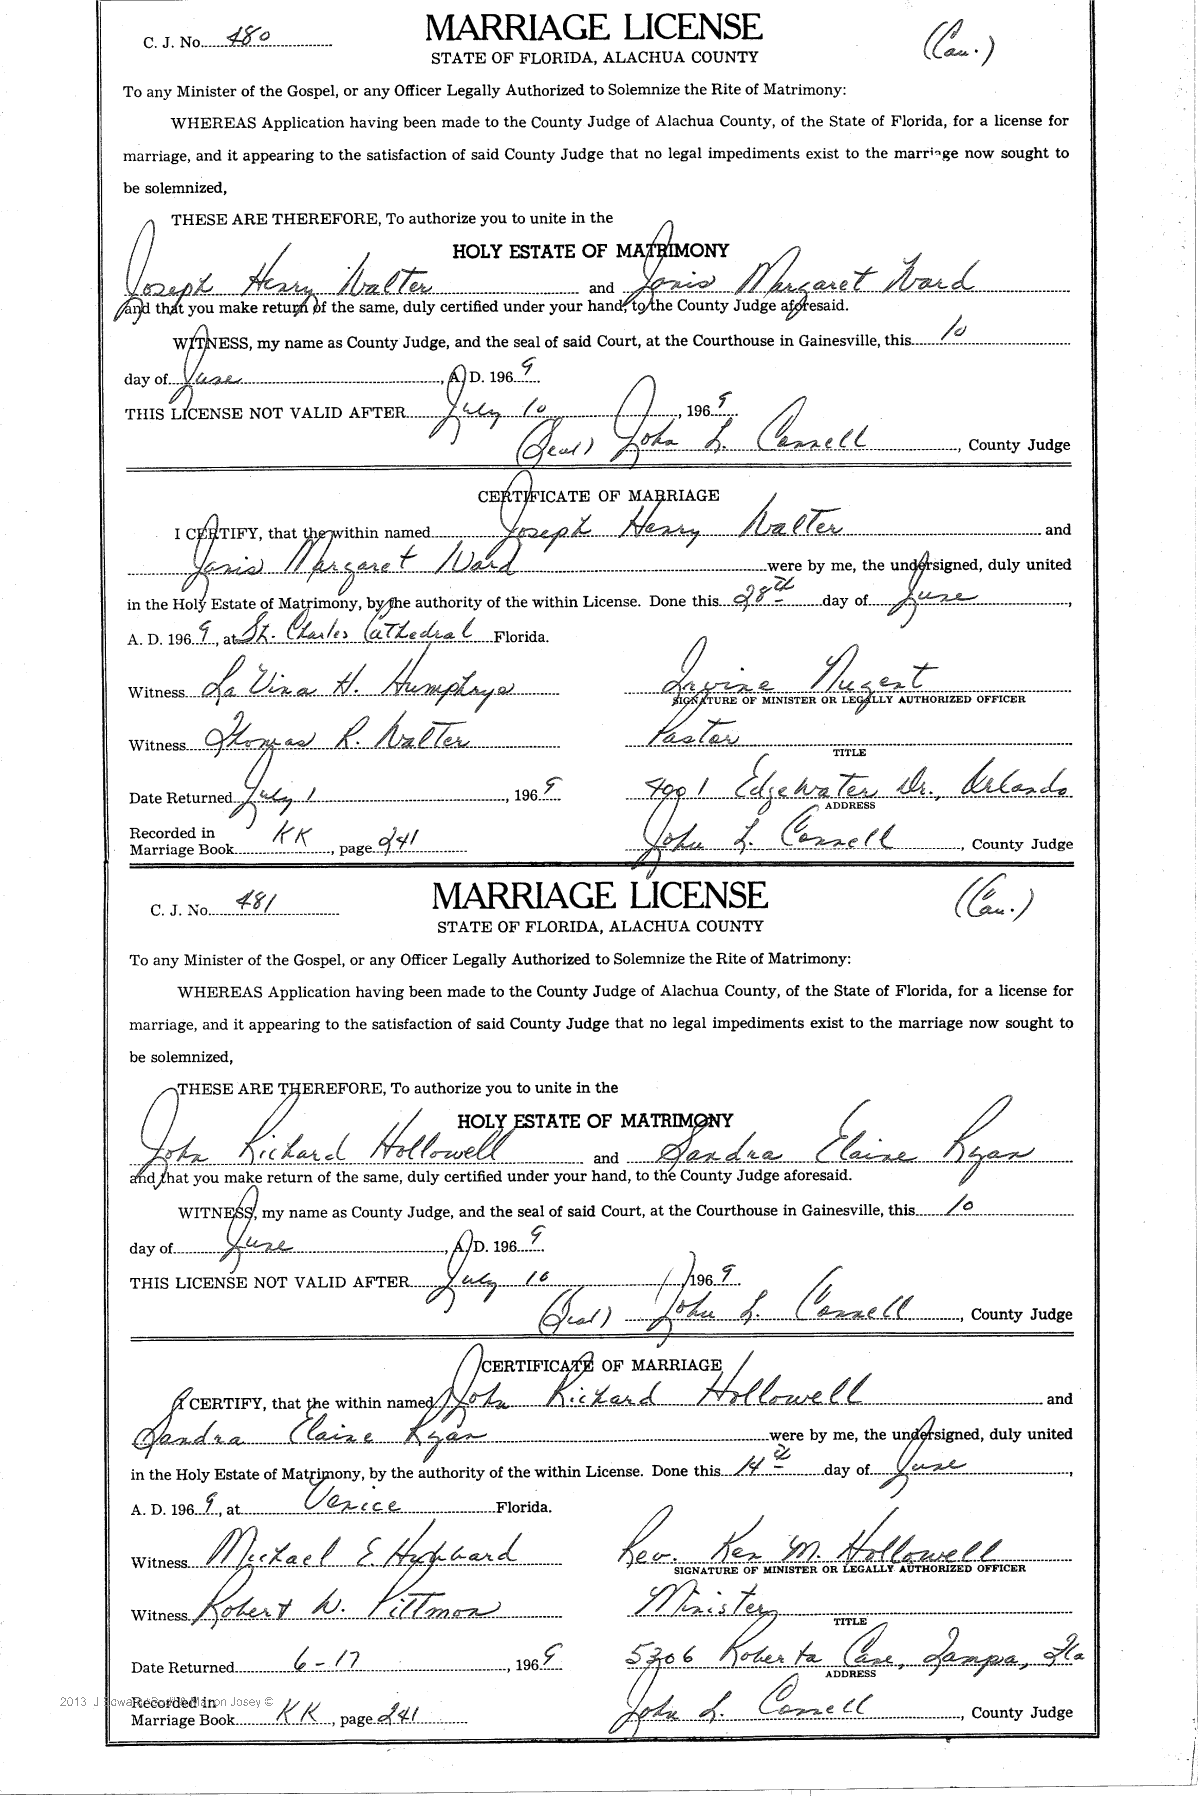 C. J. No. 480
MARRIAGE LICENSE
(Cau.)
STATE OF FLORIDA, ALACHUA COUNTY
To any Minister of the Gospel, or any Officer Legally Authorized to Solemnize the Rite of Matrimony:
WHEREAS Application having been made to the County Judge of Alachua County, of the State of Florida, for a license for
marriage, and it appearing to the satisfaction of said County Judge that no legal impediments exist to the marriage now sought to
be solemnized,
THESE ARE THEREFORE, To authorize you to unite in the
HOLY ESTATE OF MATRIMONY
Joseph Henry Walter and Janis Margaret Ward
and that you make return of the same, duly certified under your hand, to the County Judge aforesaid.
WITNESS, my name as County Judge, and the seal of said Court, at the Courthouse in Gainesville, this 10
day of June, A. D. 1969
THIS LICENSE NOT VALID AFTER July 10, 1969
(Seal) John L. Connell, County Judge
CERTIFICATE OF MARRIAGE
I CERTIFY, that the within named Joseph Henry Walter and
Janis Margaret Ward were by me, the undersigned, duly united
in the Holy Estate of Matrimony, by the authority of the within License. Done this 28th day of June,
A. D. 1969, at St. Charles Cathedral Florida.
Witness La Vina H. Humphrys Irvine Nugent
SIGNATURE OF MINISTER OR LEGALLY AUTHORIZED OFFICER
Witness Thomas R. Walter Pastor
TITLE
Date Returned July 1, 1969 4901 Edgewater Dr., Orlando
ADDRESS
Recorded in
Marriage Book KK, page 241 John L. Connell, County Judge
C. J. No. 481
MARRIAGE LICENSE
(Cau.)
STATE OF FLORIDA, ALACHUA COUNTY
To any Minister of the Gospel, or any Officer Legally Authorized to Solemnize the Rite of Matrimony:
WHEREAS Application having been made to the County Judge of Alachua County, of the State of Florida, for a license for
marriage, and it appearing to the satisfaction of said County Judge that no legal impediments exist to the marriage now sought to
be solemnized,
THESE ARE THEREFORE, To authorize you to unite in the
HOLY ESTATE OF MATRIMONY
John Richard Hollowell and Sandra Elaine Ryan
and that you make return of the same, duly certified under your hand, to the County Judge aforesaid.
WITNESS, my name as County Judge, and the seal of said Court, at the Courthouse in Gainesville, this 10
day of June, A. D. 1969
THIS LICENSE NOT VALID AFTER July 10 1969
(Seal) John L. Connell, County Judge
CERTIFICATE OF MARRIAGE
I CERTIFY, that the within named John Richard Hollowell and
Sandra Elaine Ryan were by me, the undersigned, duly united
in the Holy Estate of Matrimony, by the authority of the within License. Done this 14th day of June,
A. D. 1969, at Venice Florida.
Witness Michael E Hubbard Rev. Ken M. Hollowell
SIGNATURE OF MINISTER OR LEGALLY AUTHORIZED OFFICER
Witness Robert W. Pittman Minister
TITLE
Date Returned 6-17, 1969 5306 Roberta Cane, Tampa, Fla
ADDRESS
2013 J Josey ©
Recorded in
Marriage Book KK, page 241 John L. Connell, County Judge